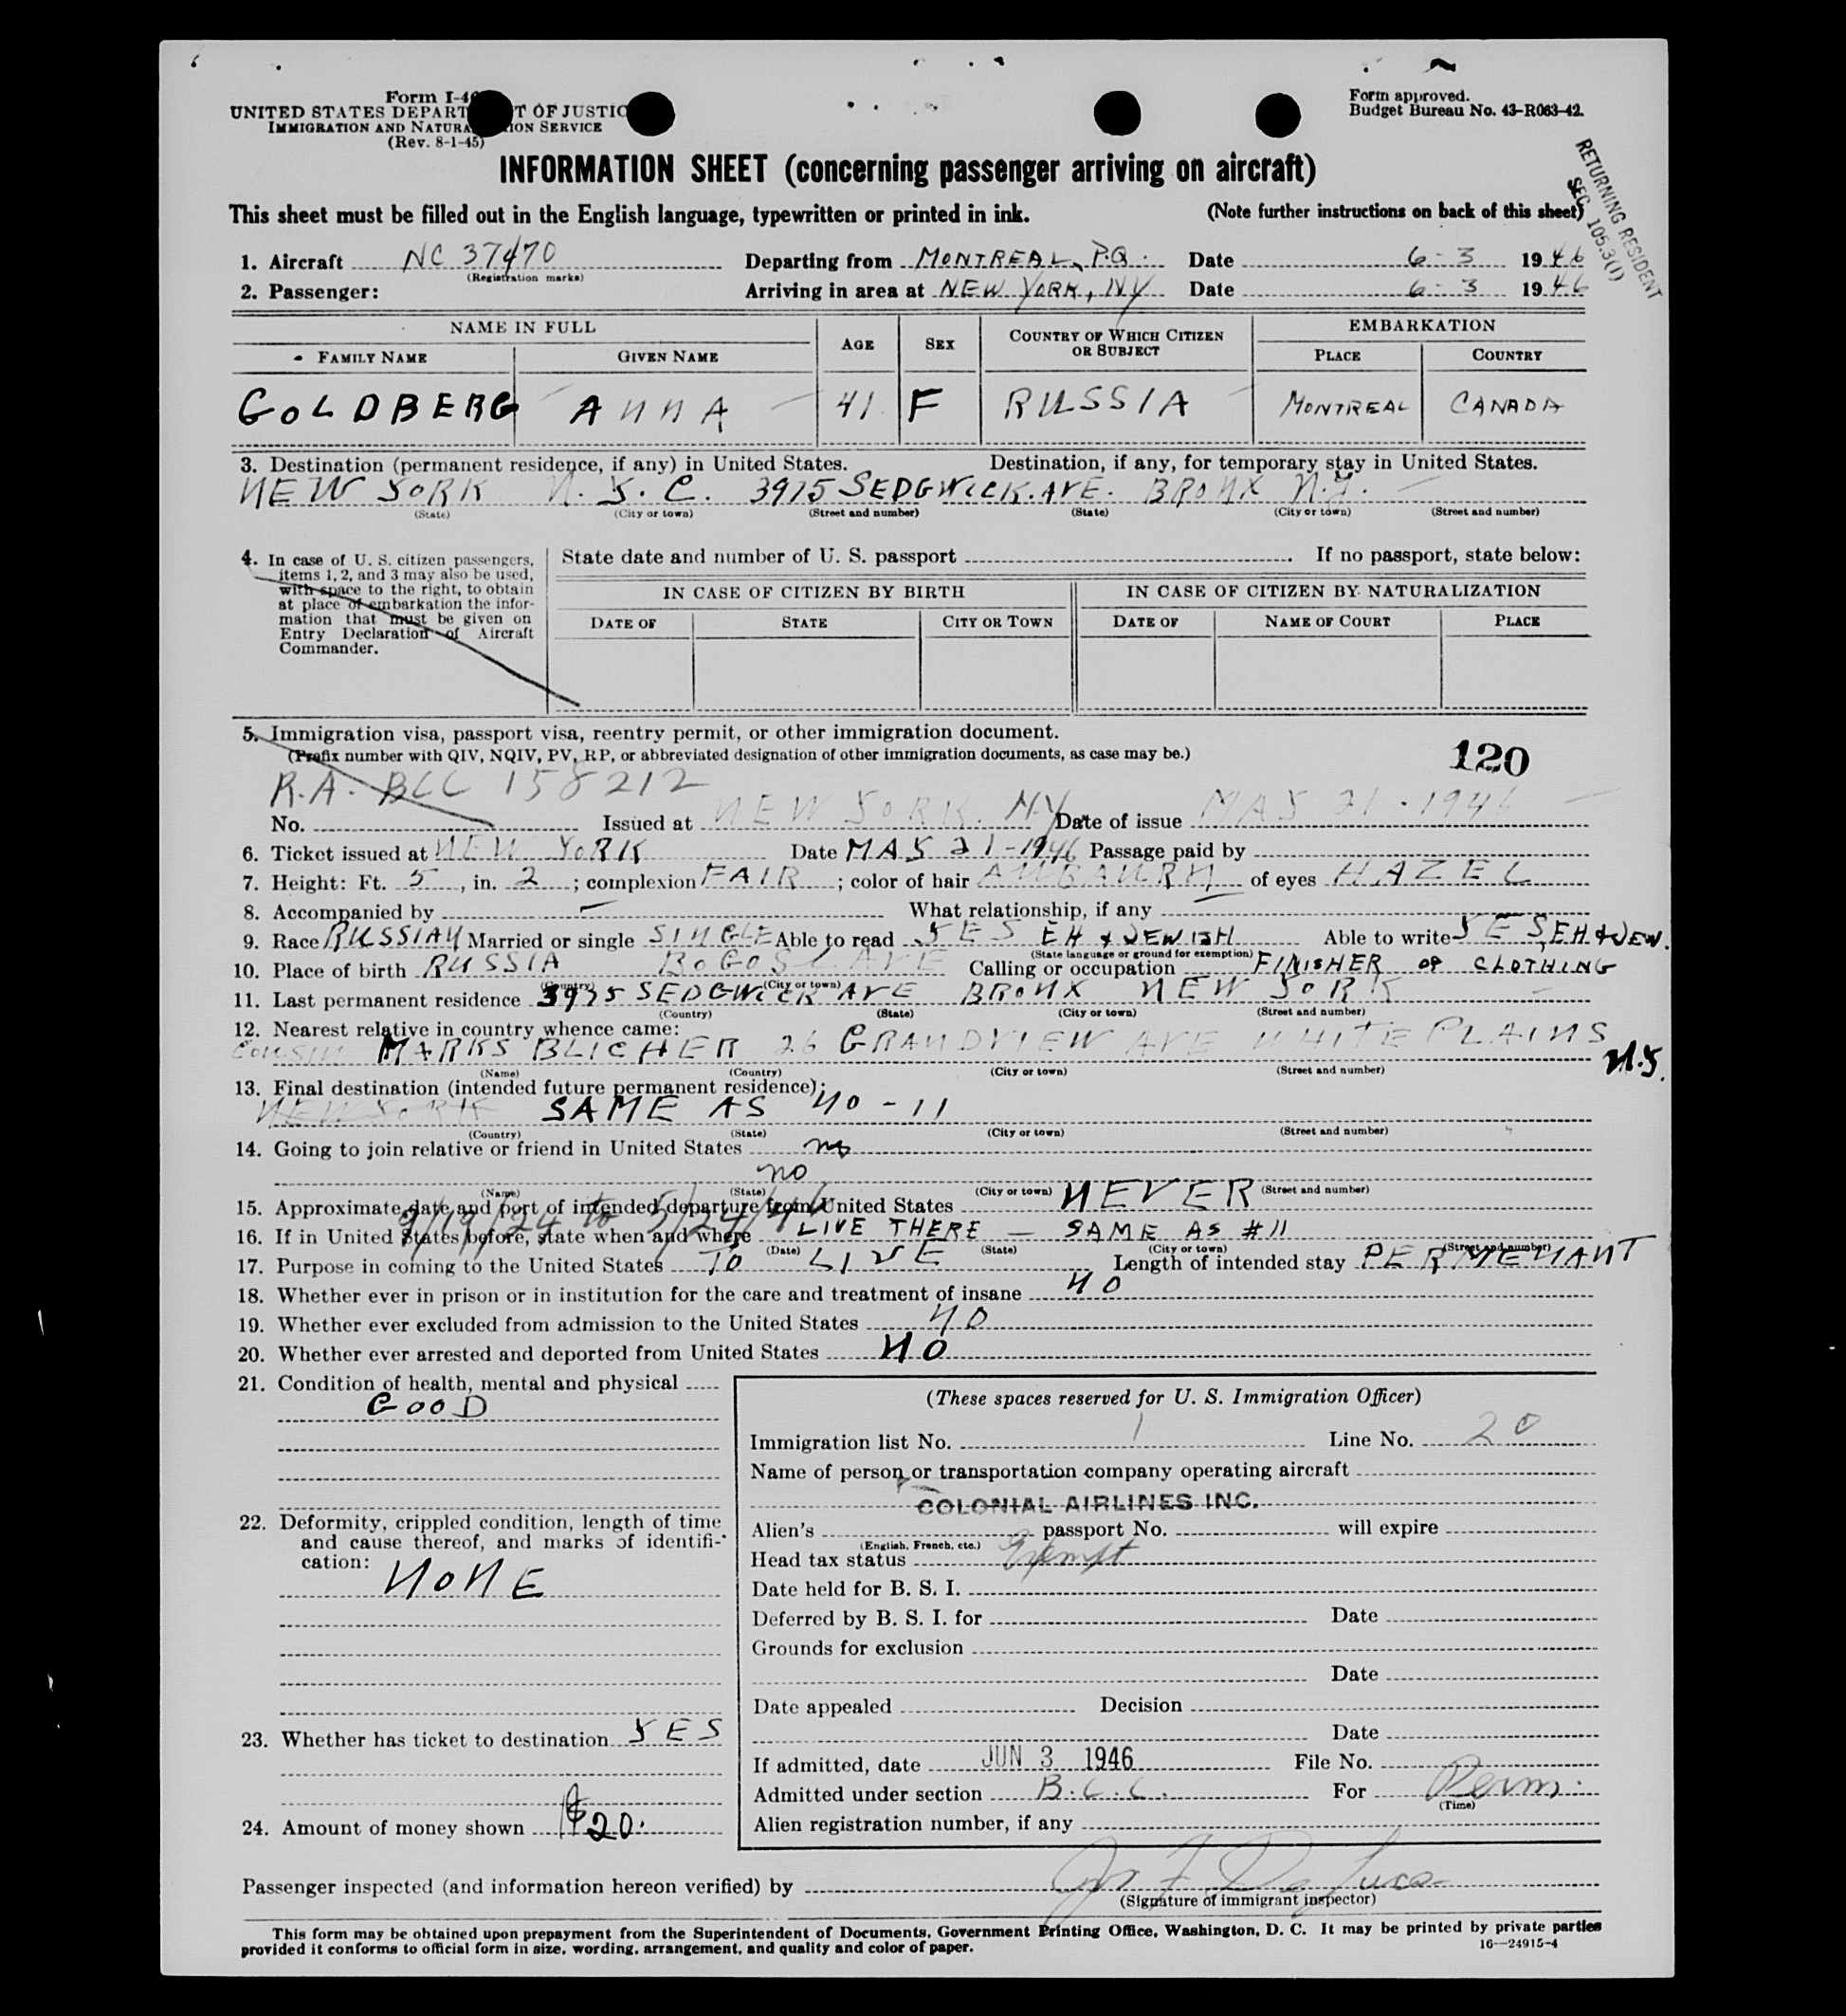 Form I-4
UNITED STATES DEPART T OF JUSTIC
IMMIGRATION AND NATURA ION SERVICE
(Rev. 8-1-45)
Form approved.
Budget Bureau No. 43-R063-42.
RETURNING RESIDENT
SEC 105.3(1)
INFORMATION SHEET (concerning passenger arriving on aircraft)
This sheet must be filled out in the English language, typewritten or printed in ink. (Note further instructions on back of this sheet)
1. Aircraft NC 37470 Departing from MONTREAL, P.Q. Date 6-3 1946
(Registration marks)
2. Passenger: Arriving in area at NEW YORK, NY Date 6-3 1946
NAME IN FULL AGE SEX COUNTRY OF WHICH CITIZEN OR SUBJECT EMBARKATION
FAMILY NAME GIVEN NAME PLACE COUNTRY
GOLDBERG ANNA 41 F RUSSIA MONTREAL CANADA
3. Destination (permanent residence, if any) in United States. Destination, if any, for temporary stay in United States.
NEW YORK N.Y.C. 3975 SEDGWICK. AVE. BRONX N.Y.
(State) (City or town) (Street and number) (State) (City or town) (Street and number)
4. In case of U. S. citizen passengers,
items 1, 2, and 3 may also be used,
with space to the right, to obtain
at place of embarkation the infor-
mation that must be given on
Entry Declaration of Aircraft
Commander.
State date and number of U. S. passport . If no passport, state below:
IN CASE OF CITIZEN BY BIRTH IN CASE OF CITIZEN BY NATURALIZATION
DATE OF STATE CITY OR TOWN DATE OF NAME OF COURT PLACE
5. Immigration visa, passport visa, reentry permit, or other immigration document.
(Prefix number with QIV, NQIV, PV, RP, or abbreviated designation of other immigration documents, as case may be.)
120
R.A. BCC 158212
No. Issued at NEW YORK. NY Date of issue MAY 21-1946
6. Ticket issued at NEW YORK Date MAY 21-1946 Passage paid by
7. Height: Ft. 5, in. 2; complexion FAIR; color of hair AUBAURN of eyes HAZEL
8. Accompanied by — What relationship, if any —
9. Race RUSSIAN Married or single SINGLE Able to read YES EH & JEWISH Able to write YES, EH & JEW.
(State language or ground for exemption)
10. Place of birth RUSSIA Calling or occupation FINISHER OF CLOTHING
(Country) (City or town)
11. Last permanent residence 3975 SEDGWICK AVE BRONX NEW YORK
(Country) (State) (City or town) (Street and number)
12. Nearest relative in country whence came:
COUSIN MARKS BLICHER 26 GRANDVIEW AVE WHITE PLAINS N.Y.
(Name) (Country) (City or town) (Street and number)
13. Final destination (intended future permanent residence):
NEW YORK SAME AS NO-11
(Country) (State) (City or town) (Street and number)
14. Going to join relative or friend in United States no
no
(Name) (State) (City or town) (Street and number)
15. Approximate date and port of intended departure from United States NEVER
9/19/24 to 5/24/46
16. If in United States before, state when and where LIVE THERE — SAME AS #11
(Date) (State) (City or town) (Street and number)
17. Purpose in coming to the United States TO LIVE Length of intended stay PERMENANT
18. Whether ever in prison or in institution for the care and treatment of insane NO
19. Whether ever excluded from admission to the United States NO
20. Whether ever arrested and deported from United States NO
21. Condition of health, mental and physical
GOOD
22. Deformity, crippled condition, length of time
and cause thereof, and marks of identifi-
cation:
NONE
23. Whether has ticket to destination YES
24. Amount of money shown $20.
(These spaces reserved for U. S. Immigration Officer)
Immigration list No. 1 Line No. 20
Name of person or transportation company operating aircraft
COLONIAL AIRLINES INC.
Alien's passport No. will expire
(English, French, etc.)
Head tax status Exempt
Date held for B. S. I.
Deferred by B. S. I. for Date
Grounds for exclusion
Date
Date appealed Decision
Date
If admitted, date JUN 3 1946 File No.
Admitted under section B.C.C. For Perm.
(Time)
Alien registration number, if any
Passenger inspected (and information hereon verified) by
(Signature of immigrant inspector)
This form may be obtained upon prepayment from the Superintendent of Documents, Government Printing Office, Washington, D. C. It may be printed by private parties
provided it conforms to official form in size, wording, arrangement, and quality and color of paper.
16—24915-4